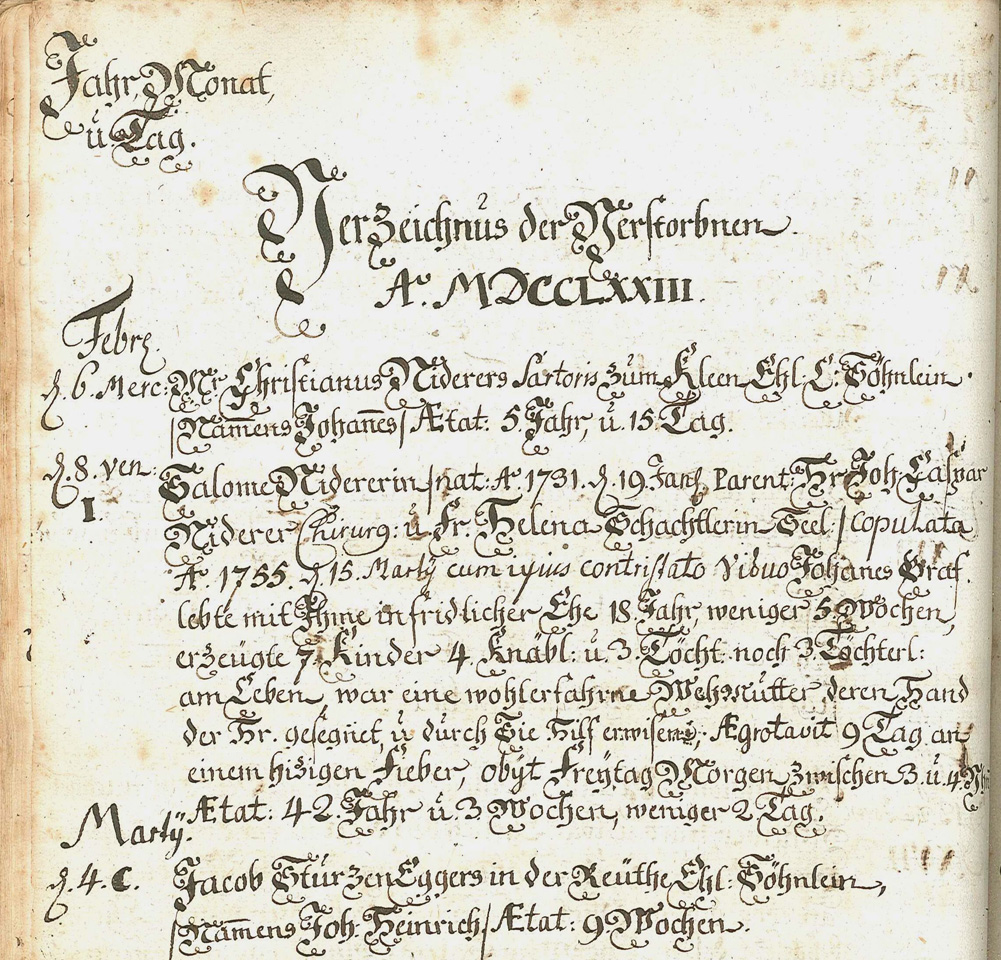 Jahr, Monat,
u. Tag.
Verzeichnus der Verstorbnen.
Aº. MDCCLXXIII.
Febr.
d. 6. Merc: Mr. Christianus Niderers Sartoris zum Kleen Ehl: C: Söhnlein.
/Nam̄ens Johan̄es/ Ætat: 5. Jahr, u. 15. Tag.
d. 8. ven.
I.
Salome Nidererin /nat: Aº 1731. d. 19. Jan. Parent: Hr. Joh: Caspar
Niderer Chirurg: u. Fr. Helena Schachtlerin Seel:/ copulata
Aº. 1755. d. 15. Martÿ cum ipius contristato Viduo Johanes Graf.
lebte mit Ihme in fridlicher Ehe 18. Jahr, weniger 5. Wochen,
erzeugte 7. Kinder 4. Knäbl: u. 3. Töcht: noch 3. Töchterl:
am Leben, war eine wohlerfahrne Wehmutter, deren Hand
der Hr. gesegnet, u. durch Sie Hilf erwisen; Ægrotavit 9. Tag an
einem hizigen Fieber, obÿt Freÿtag Morgen, zwischen 3. u. 4.
Ætat: 42. Jahr u. 3. Wochen, weniger 2. Tag.
Martÿ.
d. 4. C. Jacob SturzenEggers in der Reüthe Ehl: Söhnlein,
/Nam̄ens Joh: Heinrich/ Ætat: 9. Wochen.